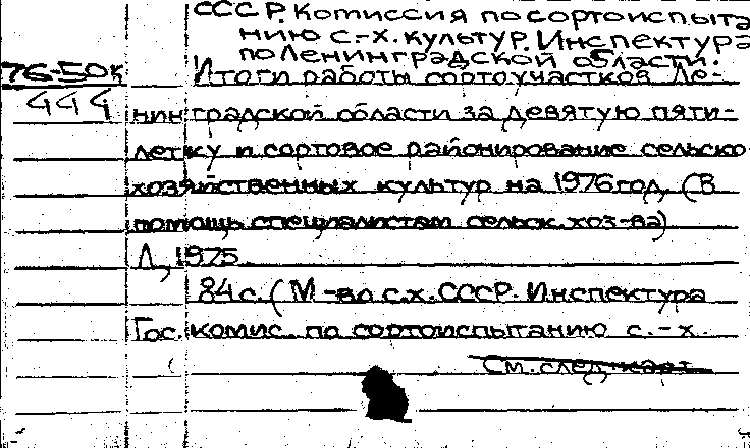 СССР. Комиссия по сортоиспыта
нию с.-х. культур. Инспектура
по Ленинградской области.
76-50к
Итоги работы сортоучастков Ле-
444
нинградской области за девятую пяти-
летку и сортовое районирование сельско
хозяйственных культур на 1976 год. (В
помощь специалистам сельск. хоз-ва)
Л, 1975
84 с. (М-во с.х. СССР. Инспектура
Гос. комис. по сортоиспытанию с.-х.
См. след. карт